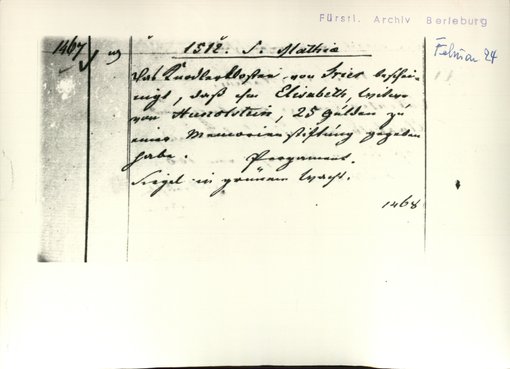 Fürstl. Archiv Berleburg
Februar 24
1467
1512. S. Mathie
Das Kloster von Trier beschei-
nigt, daß ihm Elisabeth, Witwe
von Hunolstein, 25 Gulden zu
einer Memorienstiftung gegeben
habe. Pergament.
Siegel in grünem Wachs.
1468